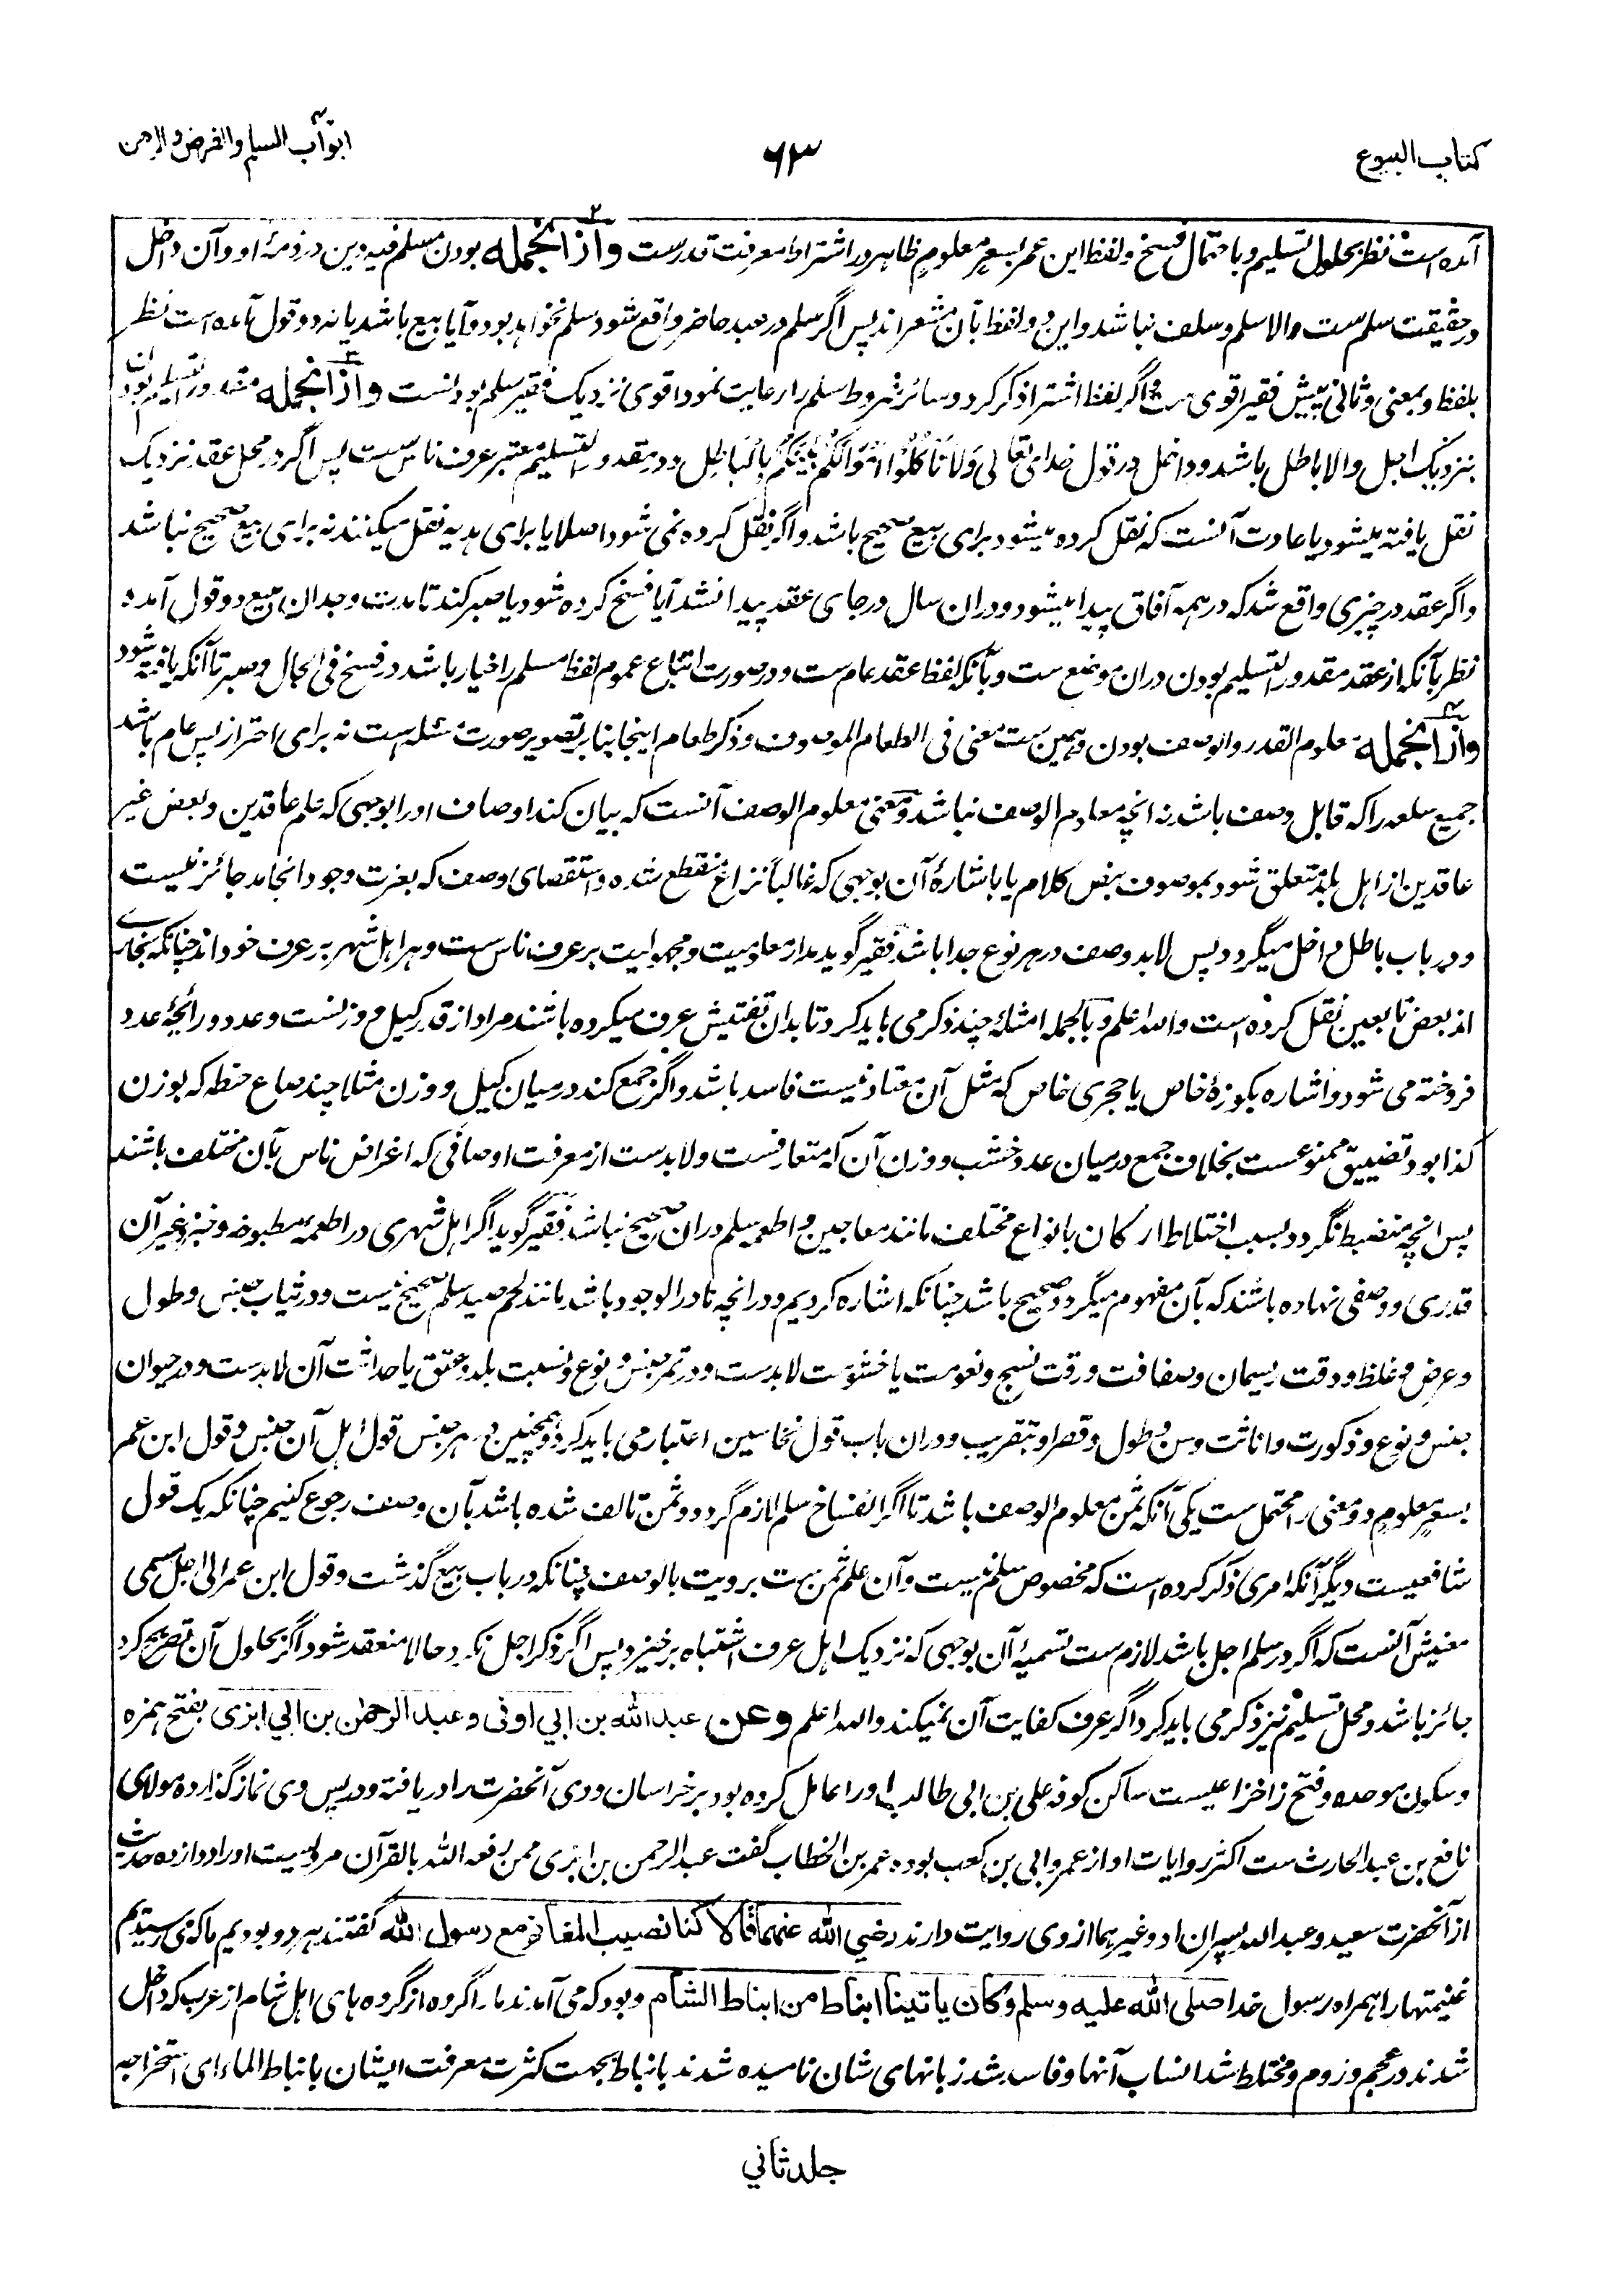 کتاب البیوع
۶۳
ابواب السلم والقرض والرهن
آمده است نظر بحلول تسلیم و با احتمال فسخ و لفظ ابن عمر بسعر معلوم ظاهر در اشتراط معرفت قدرست وازانجمله بودن مسلم فیه دین در ذمهٔ او و آن داخل
در حقیقت سلم ست والا سلم و سلف نباشد و این دو لفظ بآن مشعر اند پس اگر سلم در عبد حاضر واقع شود سلم نخواهد بود و آیا بیع باشد یا نه دو قول آمده است نظر
بلفظ و بمعنی و ثانی پیش فقیر اقوی ست اگر لفظ اشتراء ذکر کرد و سائر شروط سلم را رعایت نمود اقوی نزدیک فقیر سلم بودنست وازانجمله مقدور التسلیم بودن آن
بنزدیک اجل والا باطل باشد و داخل در قول خدای تعالی وَلَا تَأْكُلُوْا اَمْوَالَكُمْ بَيْنَكُمْ بِالْبَاطِلِ و در مقدور التسلیم معتبر عرف ناس ست پس اگر در محل عقد نزدیک
نقل یافته میشود یا عادت آنست که نقل کرده میشود برای بیع صحیح باشد و اگر نقل کرده نمی شود اصلا یا برای هدیه نقل میکنند نه برای بیع صحیح نباشد
و اگر عقد در چیزی واقع شد که در همه آفاق پیدا میشود و دران سال در جای عقد پیدا نشد آیا فسخ کرده شود یا صبر کند تا مدت وجدان مبیع دو قول آمده
نظر بآنکه از عقد مقدور التسلیم بودن دران موضع ست و بآنکه لفظ عقد عام ست و در صورت اتباع عموم لفظ مسلم را خیار باشد در فسخ فی الحال و صبر تا آنکه یافته شود
وازانجمله معلوم القدر والوصف بودن و همین ست معنی فی الطعام الموصوف و ذکر طعام اینجا بنابر تصویر صورت مسئله است نه برای احتراز پس عام باشد
جمیع سلعه را که قابل وصف باشد نه انچه معلوم الوصف نباشد و معنی معلوم الوصف آنست که بیان کند اوصاف او را بوجهی که علم عاقدین و بعض غیر
عاقدین از اهل بلد متعلق شود بموصوف بنفس کلام یا باشارهٔ آن بوجهی که غالباً نزاع منقطع شده و استقصای وصف که بعزت وجود انجامد جائز نیست
و در باب باطل داخل میگردد پس لابد وصف در هر نوع جدا باشد فقیر گوید مدار معلومیت و مجهولیت بر عرف ناس ست و هر اهل شهر بر عرف خود اند چنانکه بخاری
از بعض تابعین نقل کرده است والله اعلم و بالجمله امثلهٔ چند ذکر می باید کرد تا بدان تفتیش عرف میکرده باشند مراد از قدر کیل و وزنست و عدد در انچه عدد
فروخته می شود و اشاره بکوزهٔ خاص یا حجری خاص که مثل آن معتاد نیست فاسد باشد و اگر جمع کند در میان کیل و وزن مثلا چند صاع حنطه که بوزن
کذا بود تضییق ممنوعست بخلاف جمع درمیان عدد خشب و وزن آن که متعارفست و لابدست از معرفت اوصافی که اغراض ناس بآن مختلف باشند
پس انچه منضبط نگردد بسبب اختلاط ارکان بانواع مختلف مانند معاجین و اطعمه سلم دران صحیح نباشد فقیر گوید اگر اهل شهری در اطعمهٔ مطبوخه و خبز و غیر آن
قدری و وصفی نهاده باشند که بآن مفهوم میگردد صحیح باشد چنانکه اشاره کردیم و در انچه نادر الوجود باشد مانند لحم صید سلم صحیح نیست و در ثیاب جنس و طول
و عرض و غلظ و دقت ریسمان و صفاقت و رقت نسج و نعومت یا خشونت لابدست و در تمر جنس و نوع و نسبت بلد و عتق یا حداثت آن لابدست و در حیوان
جنس و نوع و ذکورت و انوثت و سن و طول و قصر او بتقریب و دران باب قول نخاسین اعتبار می باید کرد و همچنین در هر جنس قول اهل آن جنس و قول ابن عمر
بسعر معلوم دو معنی را محتمل ست یکی آنکه ثمن معلوم الوصف باشد تا اگر انفساخ سلم لازم گردد و ثمن تالف شده باشد بآن وصف رجوع کنیم چنانکه یک قول
شافعیست دیگر آنکه امری ذکر کرده است که مخصوص سلم نیست و آن علم ثمن ست برویت یا بوصف چنانکه در باب بیع گذشت و قول ابن عمر الی اجل مسمی
معنیش آنست که اگر در سلم اجل باشد لازم ست تسمیهٔ آن بوجهی که نزدیک اهل عرف اشتباه برخیزد پس اگر ذکر اجل نکرد حالا منعقد شود اگر بحلول آن تصریح کرد
جائز باشد و محل تسلیم نیز ذکر می باید کرد اگر عرف کفایت آن نمیکند والله اعلم وعن عبد الله بن ابي اوفى وعبد الرحمٰن بن ابي ابزى بفتح همزه
و سکون موحده و فتح زا خزاعیست ساکن کوفه علی بن ابی طالب او را عامل کرده بود بر خراسان و وی آنحضرت را دریافته و در پس وی نماز گذارده مولای
نافع بن عبد الحارث ست اکثر روایات او از عمر و ابی بن کعب بوده عمر بن الخطاب گفت عبد الرحمن بن ابزی ممن رفعه الله بالقرآن مرویست او را دوازده حدیث
از آنحضرت سعید و عبد الله پسران او و غیرهما از وی روایت دارند رضي الله عنهما قالا كنا نصيب المغانم مع رسول الله گفتند هر دو بودیم ما که می رسیدیم
غنیمتها را همراه رسول خدا صلى الله عليه وسلم وكان ياتينا انباط من انباط الشام و بود که می آمدند ما را گروه از گروه های اهل شام از عرب که داخل
شدند در عجم و روم و مختلط شد انساب آنها و فاسد شد زبانهای شان نامیده شدند بانباط بجهت کثرت معرفت ایشان بانباط الماء ای استخراجه
جلد ثاني